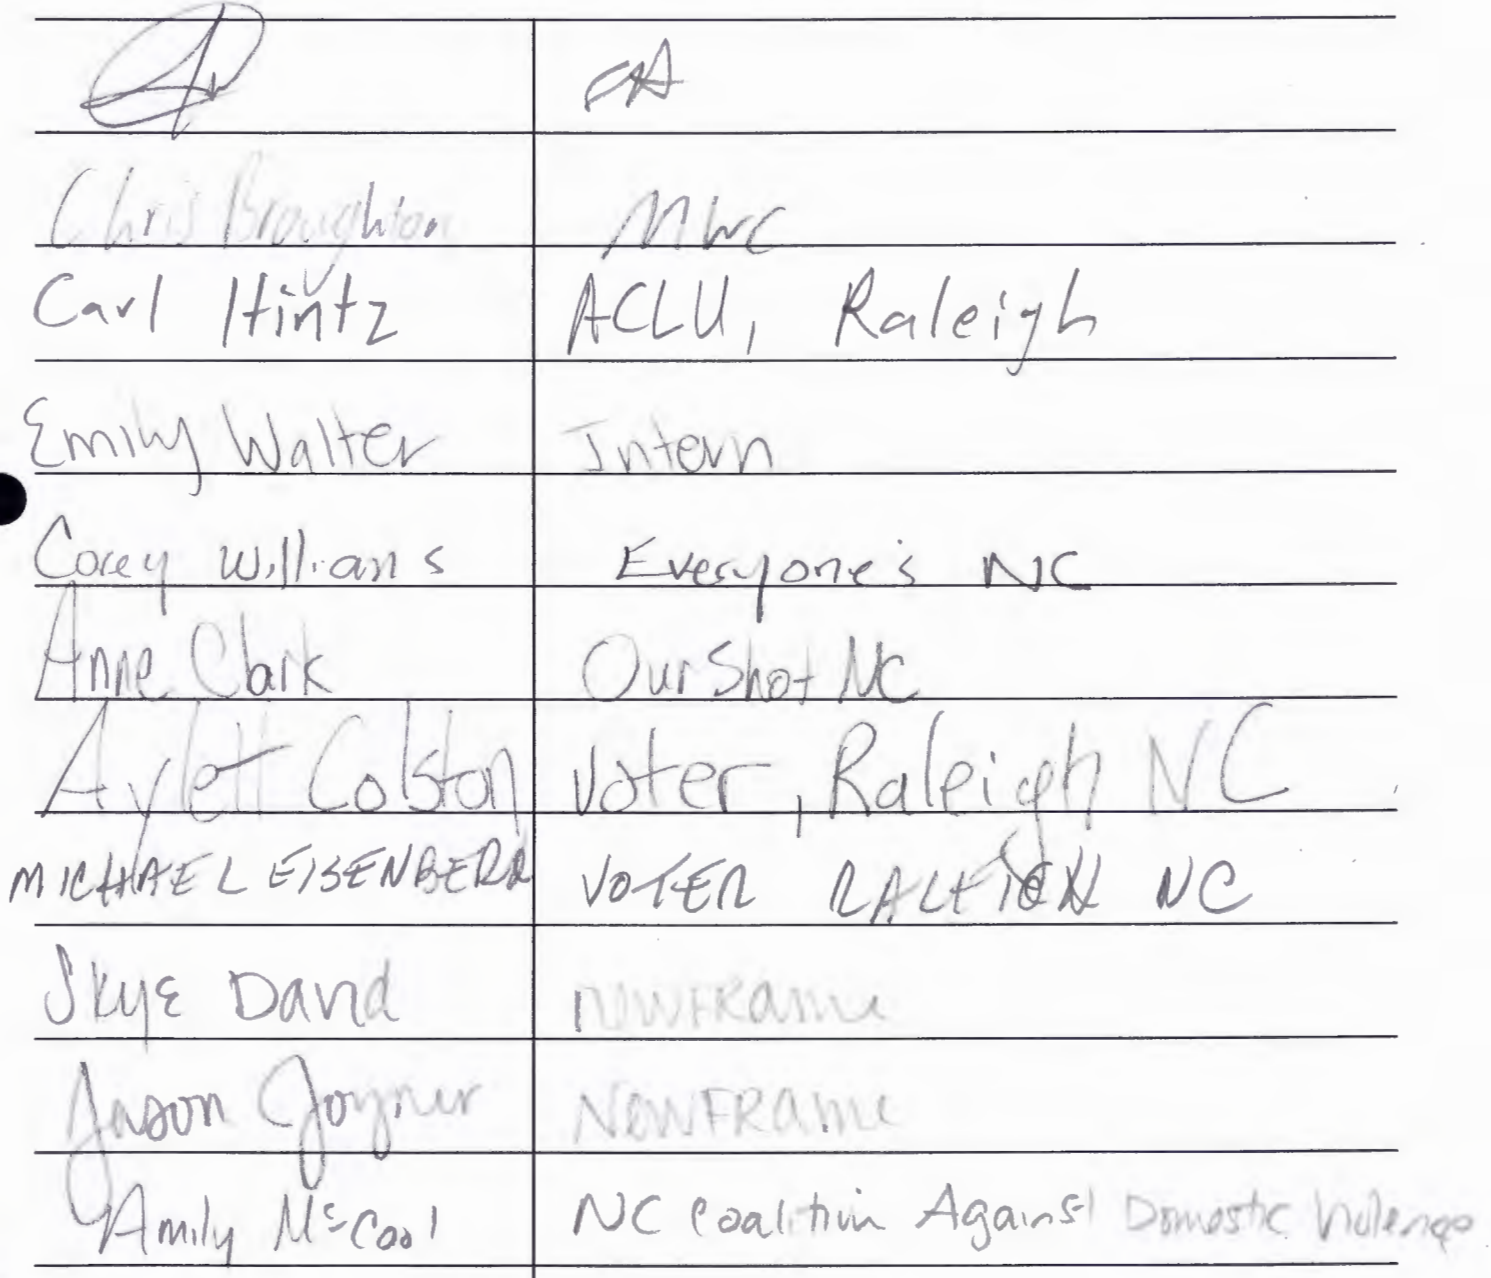 FA
Chris Broughton MWC
Carl Hintz ACLU, Raleigh
Emily Walter Intern
Corey Williams Everyone's NC
Anne Clark OurShot NC
Aylett Colston Voter, Raleigh NC
MICHAEL EISENBERG VOTER RALEIGH NC
Skye David NEWFRame
Jason Joyner NEWFRame
Amily McCool NC Coalition Against Domestic Violence